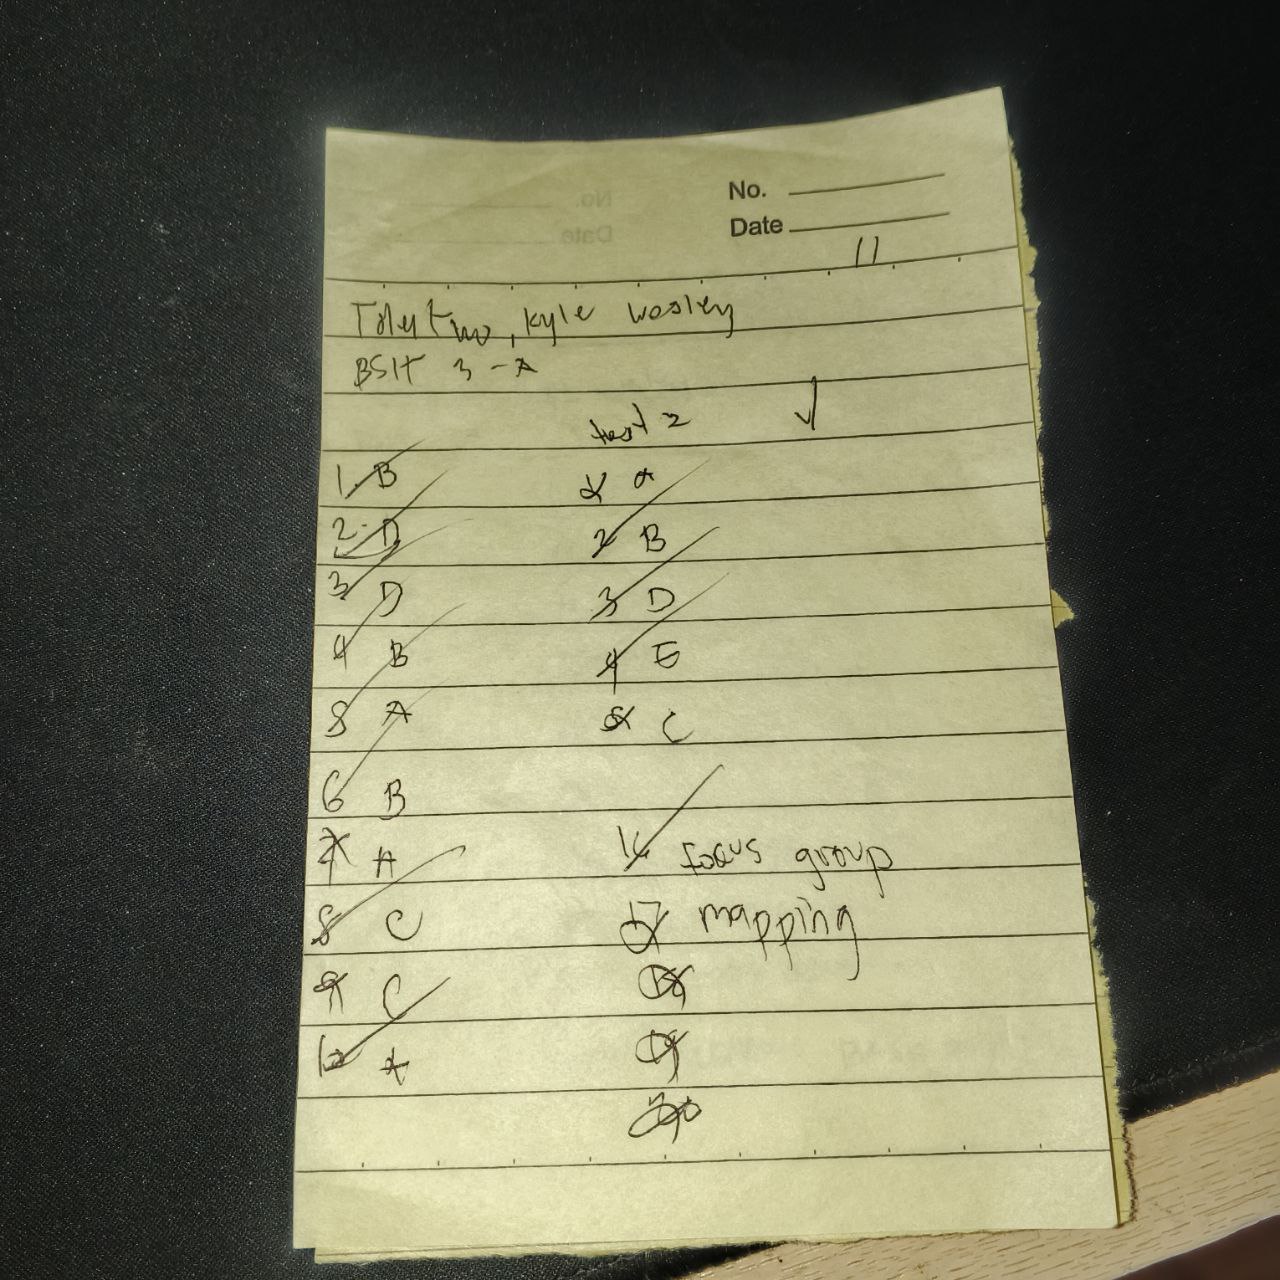 No.
Date
11
Kyle Wesley
BSIT 3-A
test 2
1. B
2. D
3 D
4 B
5 A
6 B
7 A
8 C
9 C
10 A
1 a
2 B
3 D
4 E
5 C
16 focus group
17 mapping
18
19
20